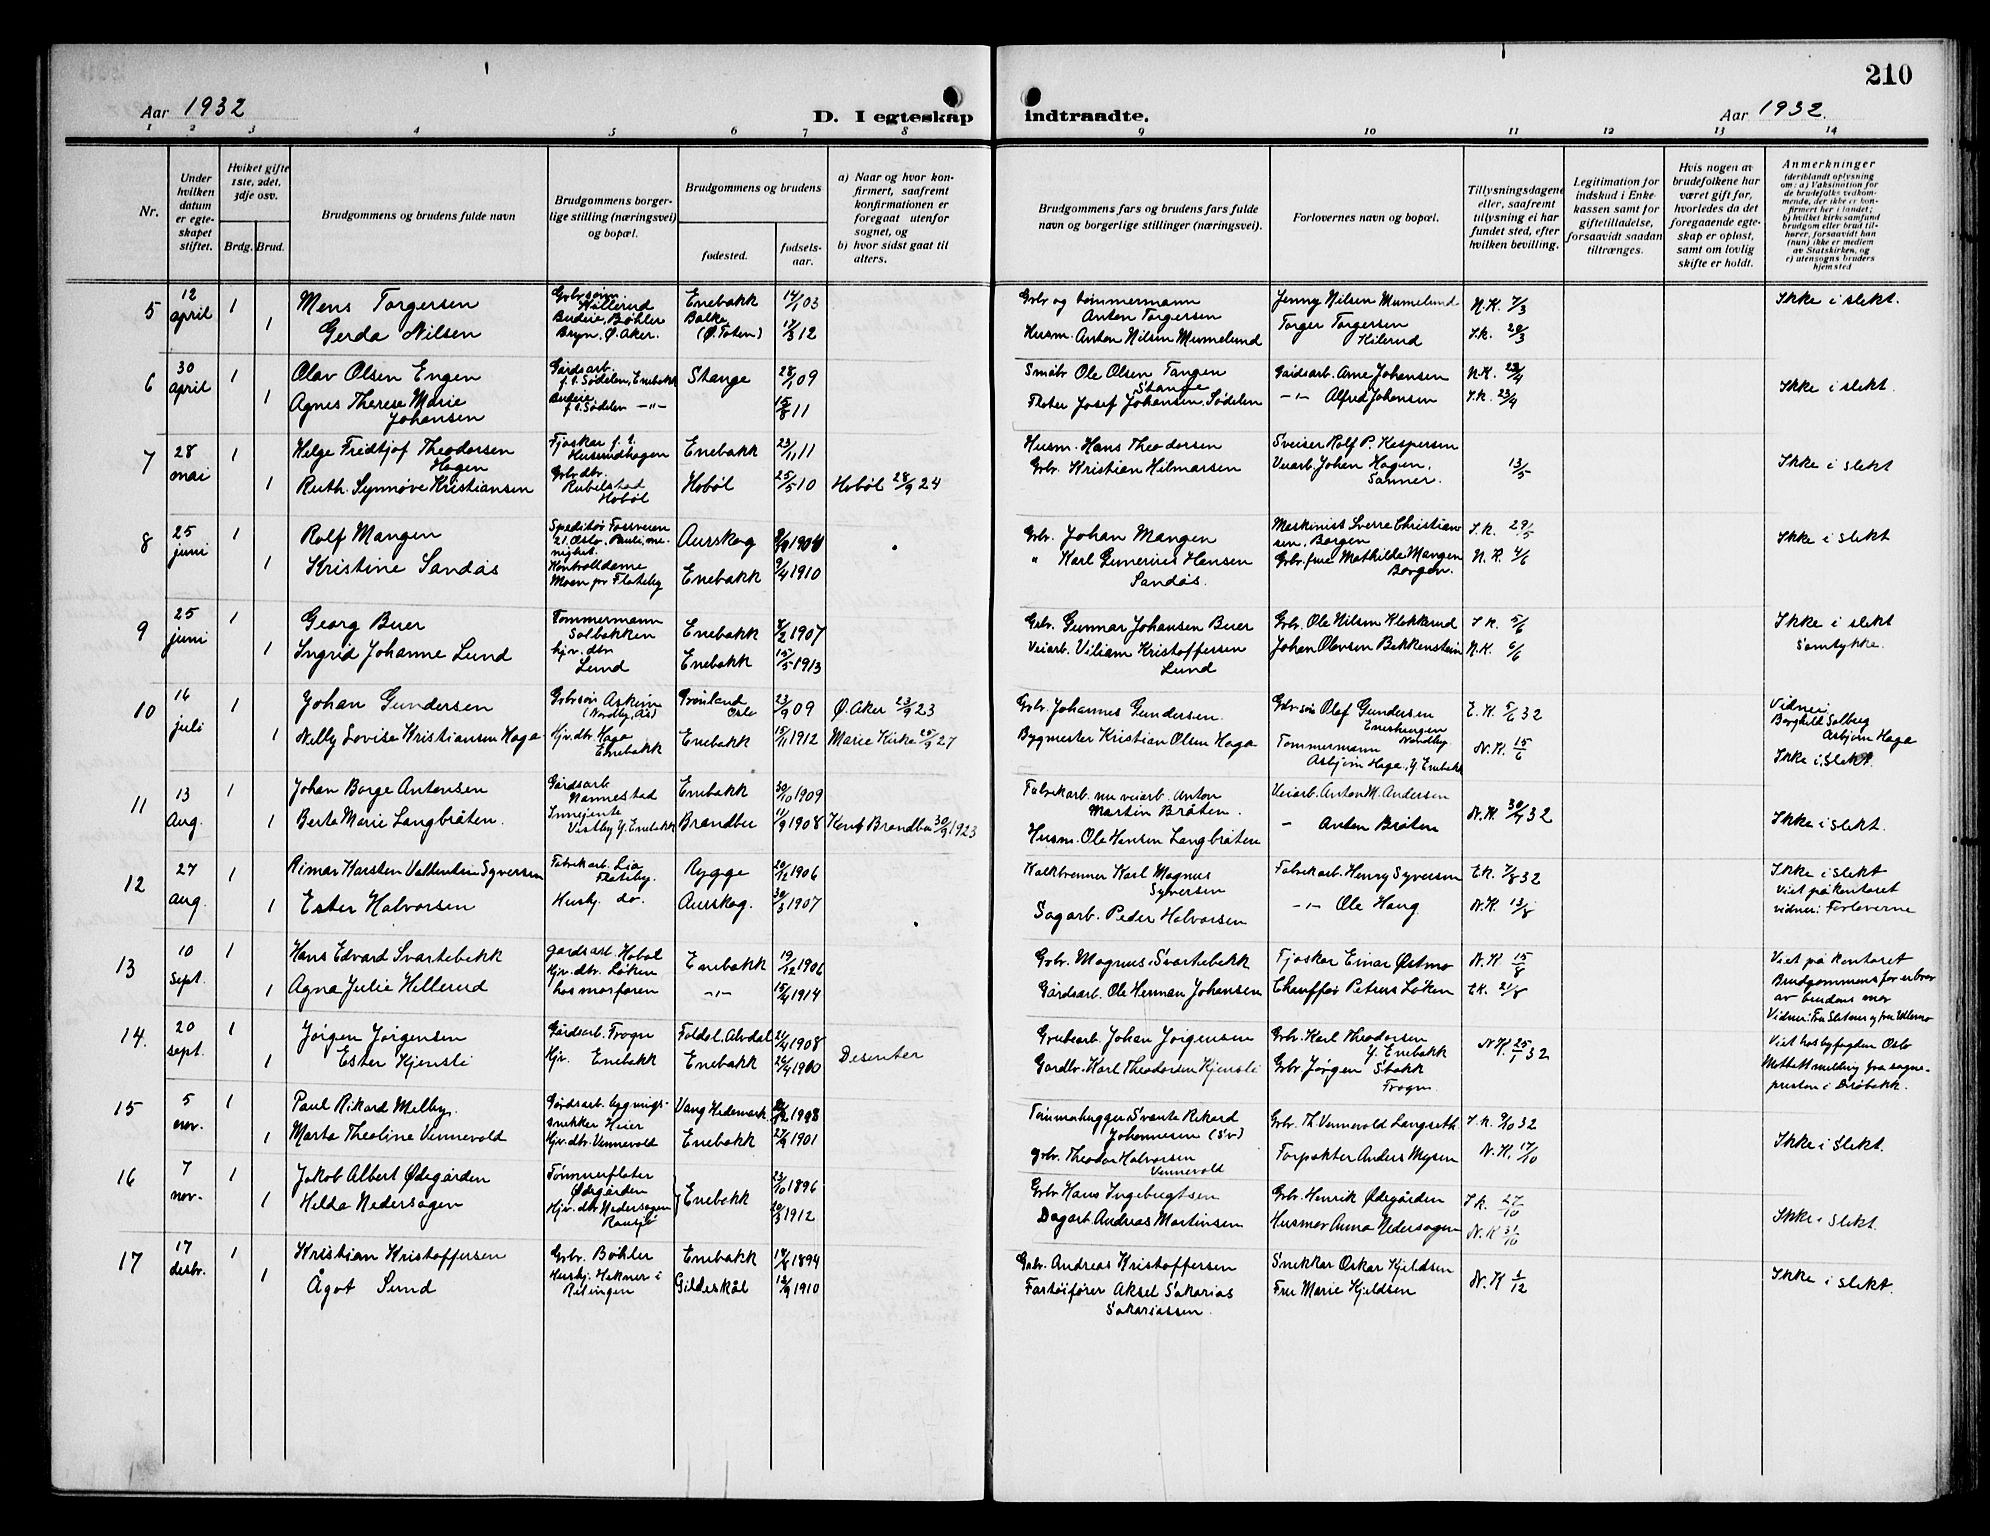 210
Aar 1932
D. I egteskap indtraadte.
Aar 1932.
1 2 3 4 5 6 7 8 9 10 11 12 13 14
Nr.
Under hvilken datum er egteskapet stiftet.
Hviket gifte 1ste, 2det, 3dje osv.
Brdg. Brud.
Brudgommens og brudens fulde navn
Brudgommens borgerlige stilling (næringsvei) og bopæl.
Brudgommens og brudens
fødested.
fødselsaar.
a) Naar og hvor konfirmert, saafremt konfirmationen er foregaat utenfor sognet, og
b) hvor sidst gaat til alters.
Brudgommens fars og brudens fars fulde navn og borgerlige stillinger (næringsvei).
Forlovernes navn og bopæl.
Tillysningsdagene eller, saafremt tillysning ei har fundet sted, efter hvilken bevilling.
Legitimation for indskud i Enkekassen samt for giftetilladelse, forsaavidt saadan tiltrænges.
Hvis nogen av brudefolkene har været gift før, hvorledes da det foregaaende egteskap er opløst, samt om lovlig skifte er holdt.
Anmerkninger (deriblandt oplysning om: a) Vaksination for de brudefolks vedkommende, der ikke er konfirmert her i landet; b) hvilket kirkesamfund brudgom eller brud tilhører, forsaavidt han (hun) ikke er medlem av Statskirken, og c) utensogns bruders hjemsted
5 12 april 1 Mens Torgersen Gbrsøn Enebakk 14/1 03 Gbr og tømmermann Anton Torgersen Jenny Nilsen Mumelund N.K. 7/3 Ikke i slekt.
1 Gerda Nilsen Budeie, Bøhler Bryn, Ø. Aker. Balke (Ø. Toten) 17/3 12 Husm. Anton Nilsen Mumelund Torger Torgersen Kilerud S.K. 20/3
6 30 april 1 Olav Olsen Engen Gårdsarb. f.t. Sødelen, Enebakk Stange 28/1 09 Småbr Ole Olsen Tangen Stange Gårdsarb. Arne Johansen N.K. 23/4 Ikke i slekt.
1 Agnes Therese Marie Johansen Budeie f.t. Sødelen -"- 15/8 11 Fløter Josef Johansen, Sødelen -"- Alfred Johansen S.K. 23/4
7 28 mai 1 Helge Fredtjof Theodorsen Hagen Fjøskar f.t. Husundhagen Enebakk 23/11 11 Husm. Hans Theodorsen Sveiser Rolf P. Kaspersen Ikke i slekt
1 Ruth Synnøve Kristiansen Gbr.dtr. Rubelstad Hobøl Hobøl 25/5 10 Hobøl 28/9 24 Gbr. Kristian Hilmarsen Veiarb. Johan Hagen, Sanner. 13/5
8 25 juni 1 Rolf Mangen Speditør Fossveien 21. Oslo. Pauli menighet. Aurskog 9/9 1904 Gbr. Johan Mangen Maskinist Sverre Christiansen, Borgen S.K. 29/5 Ikke i slekt
1 Kristine Sandås Kontrolldame Moen pr Flateby Enebakk 9/4 1910 " Karl Gunerius Hansen Sandås. Gbr. frue Mathilde Mangen Borgen. N.K. 4/6
9 25 juni 1 Georg Buer Tømmermann Solbakken Enebakk 1907 Gbr. Gunnar Johansen Buer Gbr. Ole Nilsen Klokkerud S.K. 5/6 Ikke i slekt
1 Ingrid Johanne Lund hjv. dtr Lund Enebakk 15/5 1913 Veiarb. Viliam Kristoffersen Lund Johan Olavsen Bekkenstein N.K. 6/6 Samtykke.
10 16 juli 1 Johan Gundersen Gbrsøn Askim (Nordby, Ås) Grønland Oslo 23/9 09 Ø. Aker 23/9 23 Gbr. Johannes Gundersen. Gbrsøn Olaf Gundersen Nordby. E.K. 5/6 32 Vidner: Borghild Solberg Asbjørn Haga
1 Nelly Lovise Kristiansen Haga Hjv. dtr. Haga Enebakk Enebakk 15/11 1912 Marie Kirke 25/9 27 Bygmester Kristian Olsen Haga Tømmermann Asbjørn Haga, Y. Enebakk N.K. 15/6 Ikke i slekt.
11 13 Aug. 1 Johan Borge Antonsen Gårdsarb. Nannestad Enebakk 30/10 1909 Fabrikarb. nu veiarb. Anton Martin Bråten. Veiarb. Anton M. Andersen N.K. 30/7 32 Ikke i slekt.
1 Berta Marie Langbråten. Innejente Vestby Y. Enebakk Brandbu 11/9 1908 Konf. Brandbu 30/9 1923 Husm. Ole Hansen Langbråten - Anton Bråten
12 27 Aug. 1 Rimar Karsten Vallentin Syversen Fabrikarb. Lia Flateby. Rygge 20/12 1906 Kalkbrenner Karl Magnus Syversen Fabrikarb. Henry Syversen E.K. 7/8 32 Ikke i slekt
1 Ester Halvorsen Hushj. do. Aurskog. 30/3 1907 Sagarb. Peder Halvorsen -"- Ole Haug N.K. 13/8 Viet på kontoret vidner: Forloverne
13 10 Sept. 1 Hans Edvard Svartebekk gårdsarb. Hobøl Enebakk 19/12 1906 Gbr. Magnus Svartebekk Fjøskar Einar Østmo N.K. 15/8 Viet på kontoret
1 Agna Julie Hellerud Hjv. dtr. Løken hos morfaren -"- 15/4 1914 Gårdsarb. Ole Herman Johansen Chauffør Petrus Løken E.K. 21/8 Brudgommens far er bror av brudens mor
14. 20 sept. 1 Jørgen Jørgensen Gårdsarb. Frogn Foldal, Alvdal 21/4 1908 Grubearb. Johan Jørgensen Gbr. Karl Theodorsen Y. Enebakk N.K. 25/1 32 Viet hos byfogden Oslo
1 Ester Kjensli Hjv. Enebakk Enebakk 26/4 1900 Desenter Gardbr. Karl Theodorsen Kjensli Gbr. Jørgen Stokk Frogn. Mottatt melding fra sognepresten i Drøbakk.
15 5 nov. 1 Paul Rikard Melby. Vang Hedemark. 1898 Tømmerhugger Svante Rikard Johannesen (Sv) Gbr. Th. Vennevold Langseth S.K. 9/10 32 Ikke i slekt.
1 Marta Theoline Vennevold Hjv. dtr. Vennevold Enebakk 27/9 1901 gbr. Theodor Halvorsen Vennevold Forpakter Anders Mysen N.K. 17/10
16 7 nov. 1 Jakob Albert Ødegården Tømmerfløter Ødegården Enebakk 23/10 1896 Gbr Hans Ingebrigtsen Gbr. Henrik Ødegården S.K. 27/10 Ikke i slekt.
1 Hilda Nedersagen Hjv. dtr. Nedersagen 20/3 1912 Dagarb. Andreas Martinsen Husmor Anna Nedersagen N.K. 31/10
17 17 desbr. 1 Kristian Kristoffersen Gbr. Bøhler Enebakk 1894 Gbr. Andreas Kristoffersen Snekkar Oskar Kjeldsen N.K. 1/12 Ikke i slekt.
1 Ågot Lund Hushj. Hakner i Relingen Gildeskål 12/9 1910 Fartøifører Aksel Sakarias Sakariassen. Fru Marie Kjeldsen